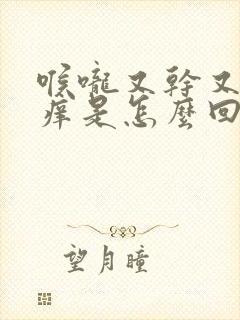 喉嚨又幹又
痒是怎麼回
望月瞳